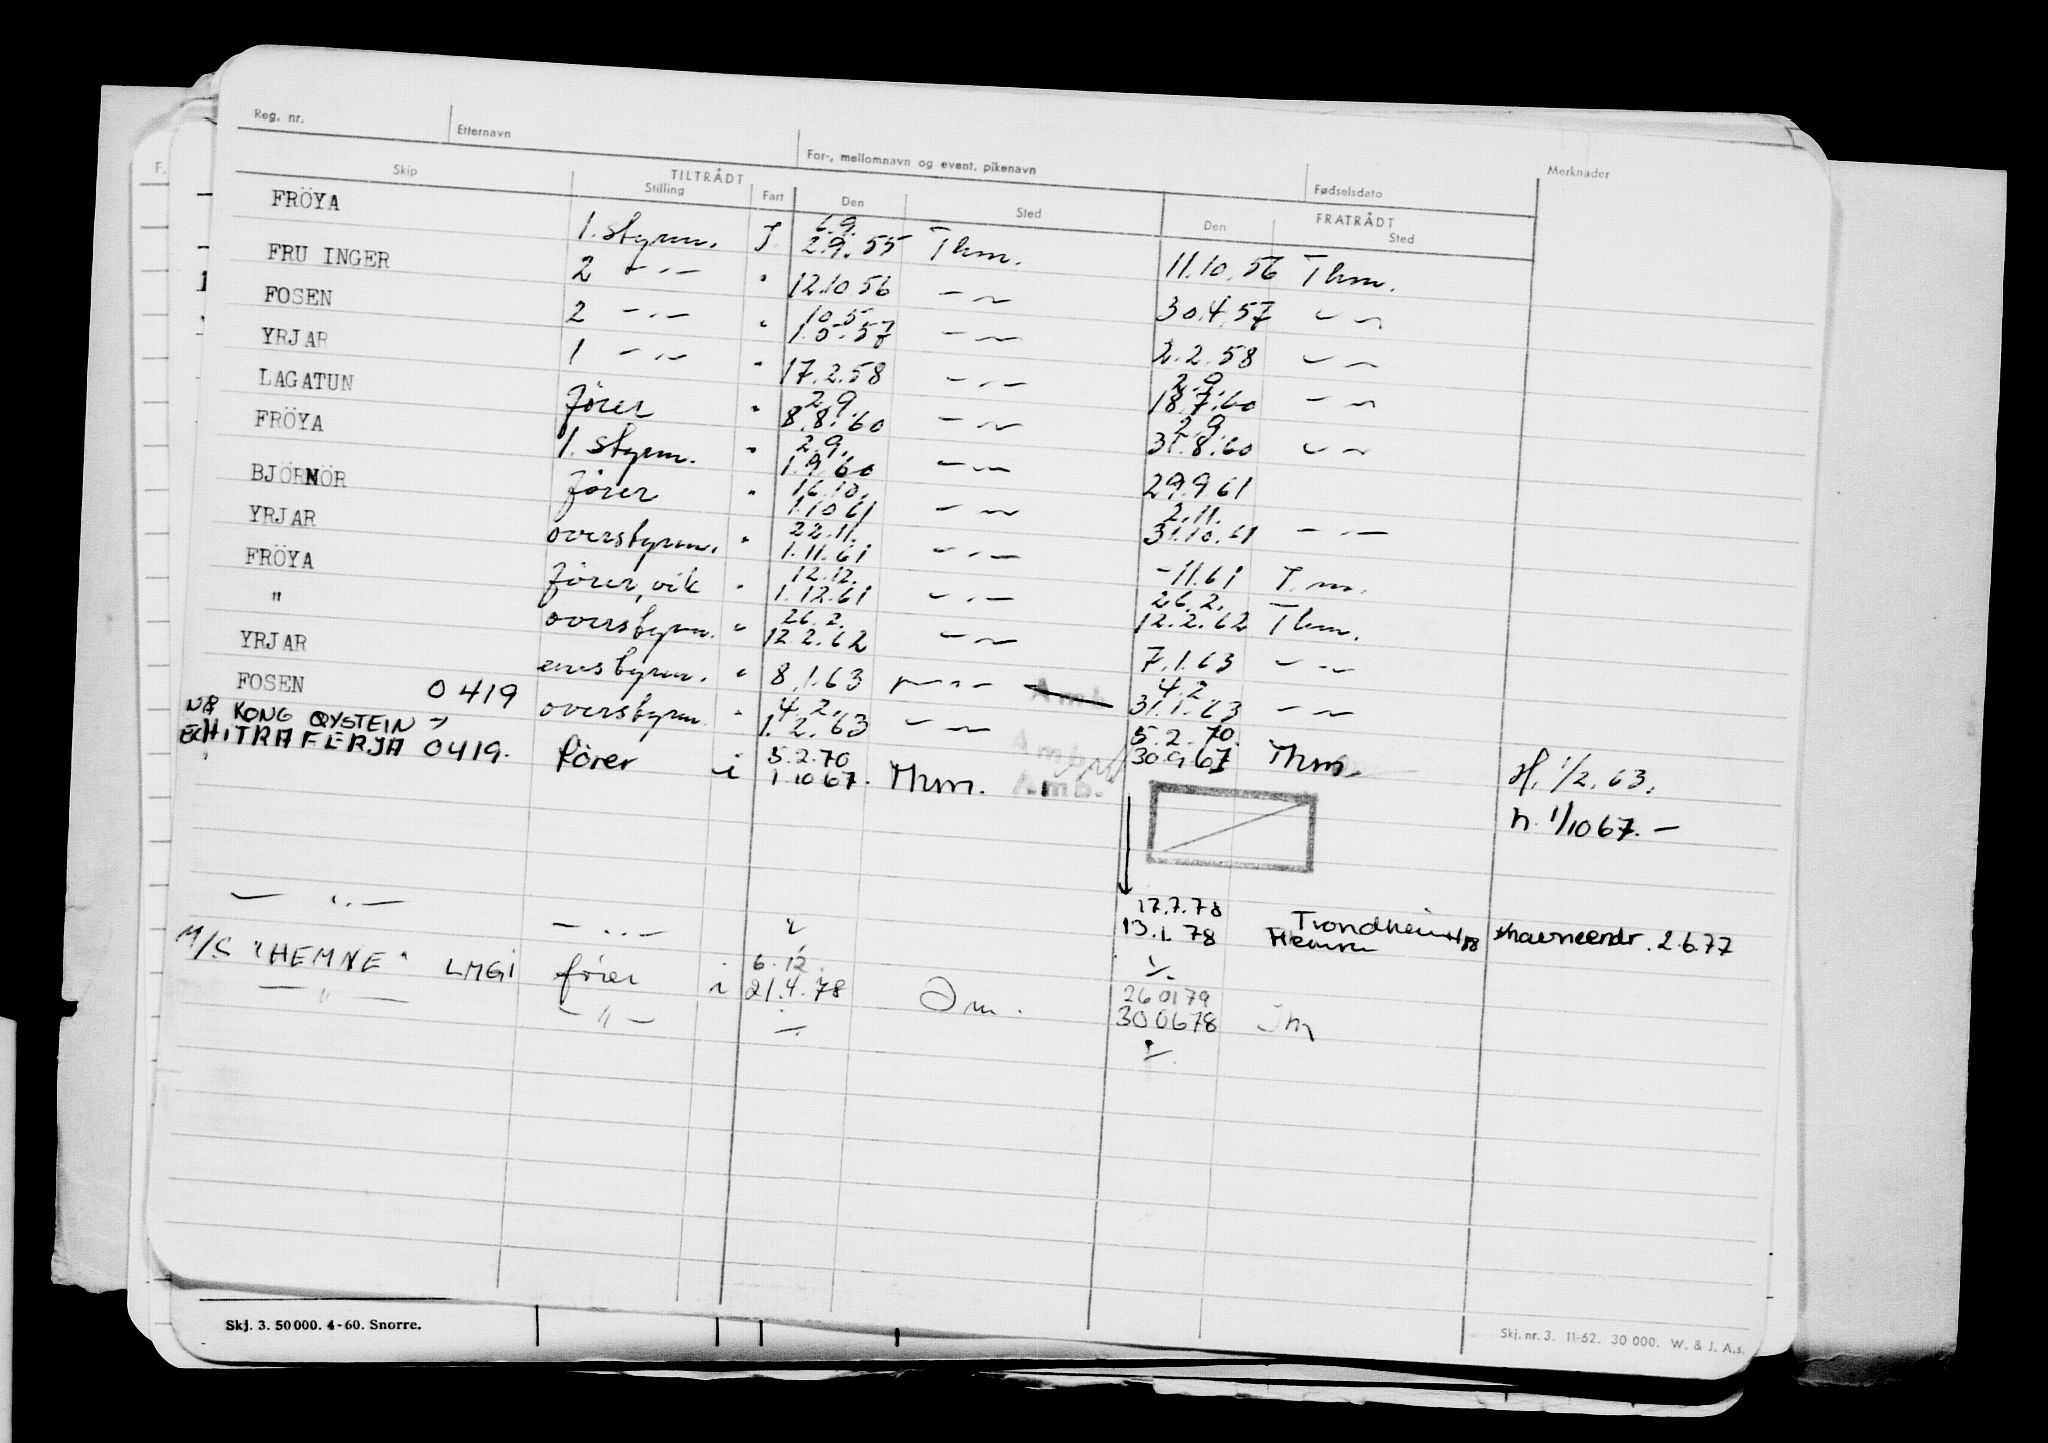 Reg. nr. Etternavn For-, mellomnavn og event. pikenavn Fødselsdato Merknader
Skip TILTRÅDT FRATRÅDT
Stilling Fart Den Sted Den Sted
6.9.
FRÖYA 1. styrm. J. 2.9.55 Thm. 11.10.56 Thm.
FRU INGER 2 — " — " 12.10 56 — " — 30.4.57 — " —
10.5
FOSEN 2 — " — " 1.5.57 — " — 2.2.58 — " —
2.9.
YRJAR 1 — " — " 17.2.58 — " — 18.7.60 — " —
2.9. 2.9
LAGATUN fører " 8.8.60 — " — 31.8.60 — " —
2.9.
FRÖYA 1. styrm. " 1.9.60 — " — 29.9.61
16.10. 2.11.
BJÖRNÖR fører " 1.10 61 — " — 31.10.61 — " —
22.11.
YRJAR overstyrm. " 1.11.61 — " — -11.61 T.m.
12.12. 26.2.
FRÖYA fører, vik " 1.12.61 — " — 12.2.62 Thm.
26.2.
" overstyrm. " 12.2.62 — " — 7.1.63 — " —
4.2
YRJAR enestyrm. " 8.1.63 — " — Amb. 31.1.63 — " —
4.2. 5.2.70.
FOSEN 0419 overstyrm " 1.2.63 — " — Amb. 30.9.67 Thm. H. 1/2.63.
NÅ KONG ØYSTEIN
5.2.70
EX HITRAFERJA 0419. fører i 1.10 67. Thm. Amb. n. 1/10 67. —
17.7.78 Trondheim
— " — — " — " 13.1.78 Hemne 2.6.77
6.12. 260179
M/S "HEMNE" LMGI fører i 21.4.78 300678
— " — — " —
Skj. 3. 50 000. 4-60. Snorre.
Skj. nr. 3. 11-62. 30 000. W. & J. A.s.